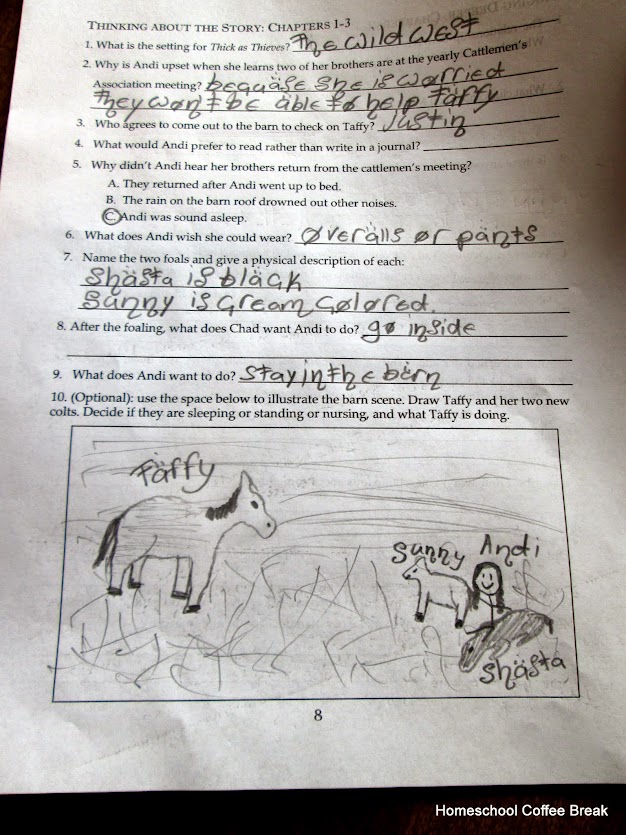 THINKING ABOUT THE STORY: CHAPTERS 1-3
1. What is the setting for Thick as Thieves? The wild west
2. Why is Andi upset when she learns two of her brothers are at the yearly Cattlemen's
Association meeting? bequase she is worried
they won't be able to help Taffy
3. Who agrees to come out to the barn to check on Taffy? Justin
4. What would Andi prefer to read rather than write in a journal?
5. Why didn't Andi hear her brothers return from the cattlemen's meeting?
A. They returned after Andi went up to bed.
B. The rain on the barn roof drowned out other noises.
C. Andi was sound asleep.
6. What does Andi wish she could wear? Øverälls ør pänts
7. Name the two foals and give a physical description of each:
Shästa is bläck
Sunny is cream cølored.
8. After the foaling, what does Chad want Andi to do? gø inside
9. What does Andi want to do? stay in the bärn
10. (Optional): use the space below to illustrate the barn scene. Draw Taffy and her two new
colts. Decide if they are sleeping or standing or nursing, and what Taffy is doing.
Täffy
Sunny Andi
Shästa
8
Homeschool Coffee Break